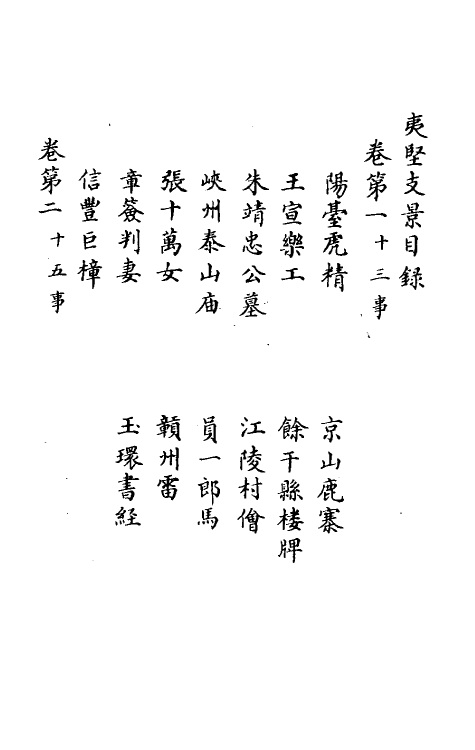 夷堅支景目録
卷第一十三事
陽臺虎精　京山鹿寨
王宣樂工　餘干縣楼牌
朱靖忠公墓　江陵村儈
峽州泰山庙　員一郎馬
張十萬女　贛州雷
章簽判妻　玉環書経
信豐巨樟
卷第二十五事